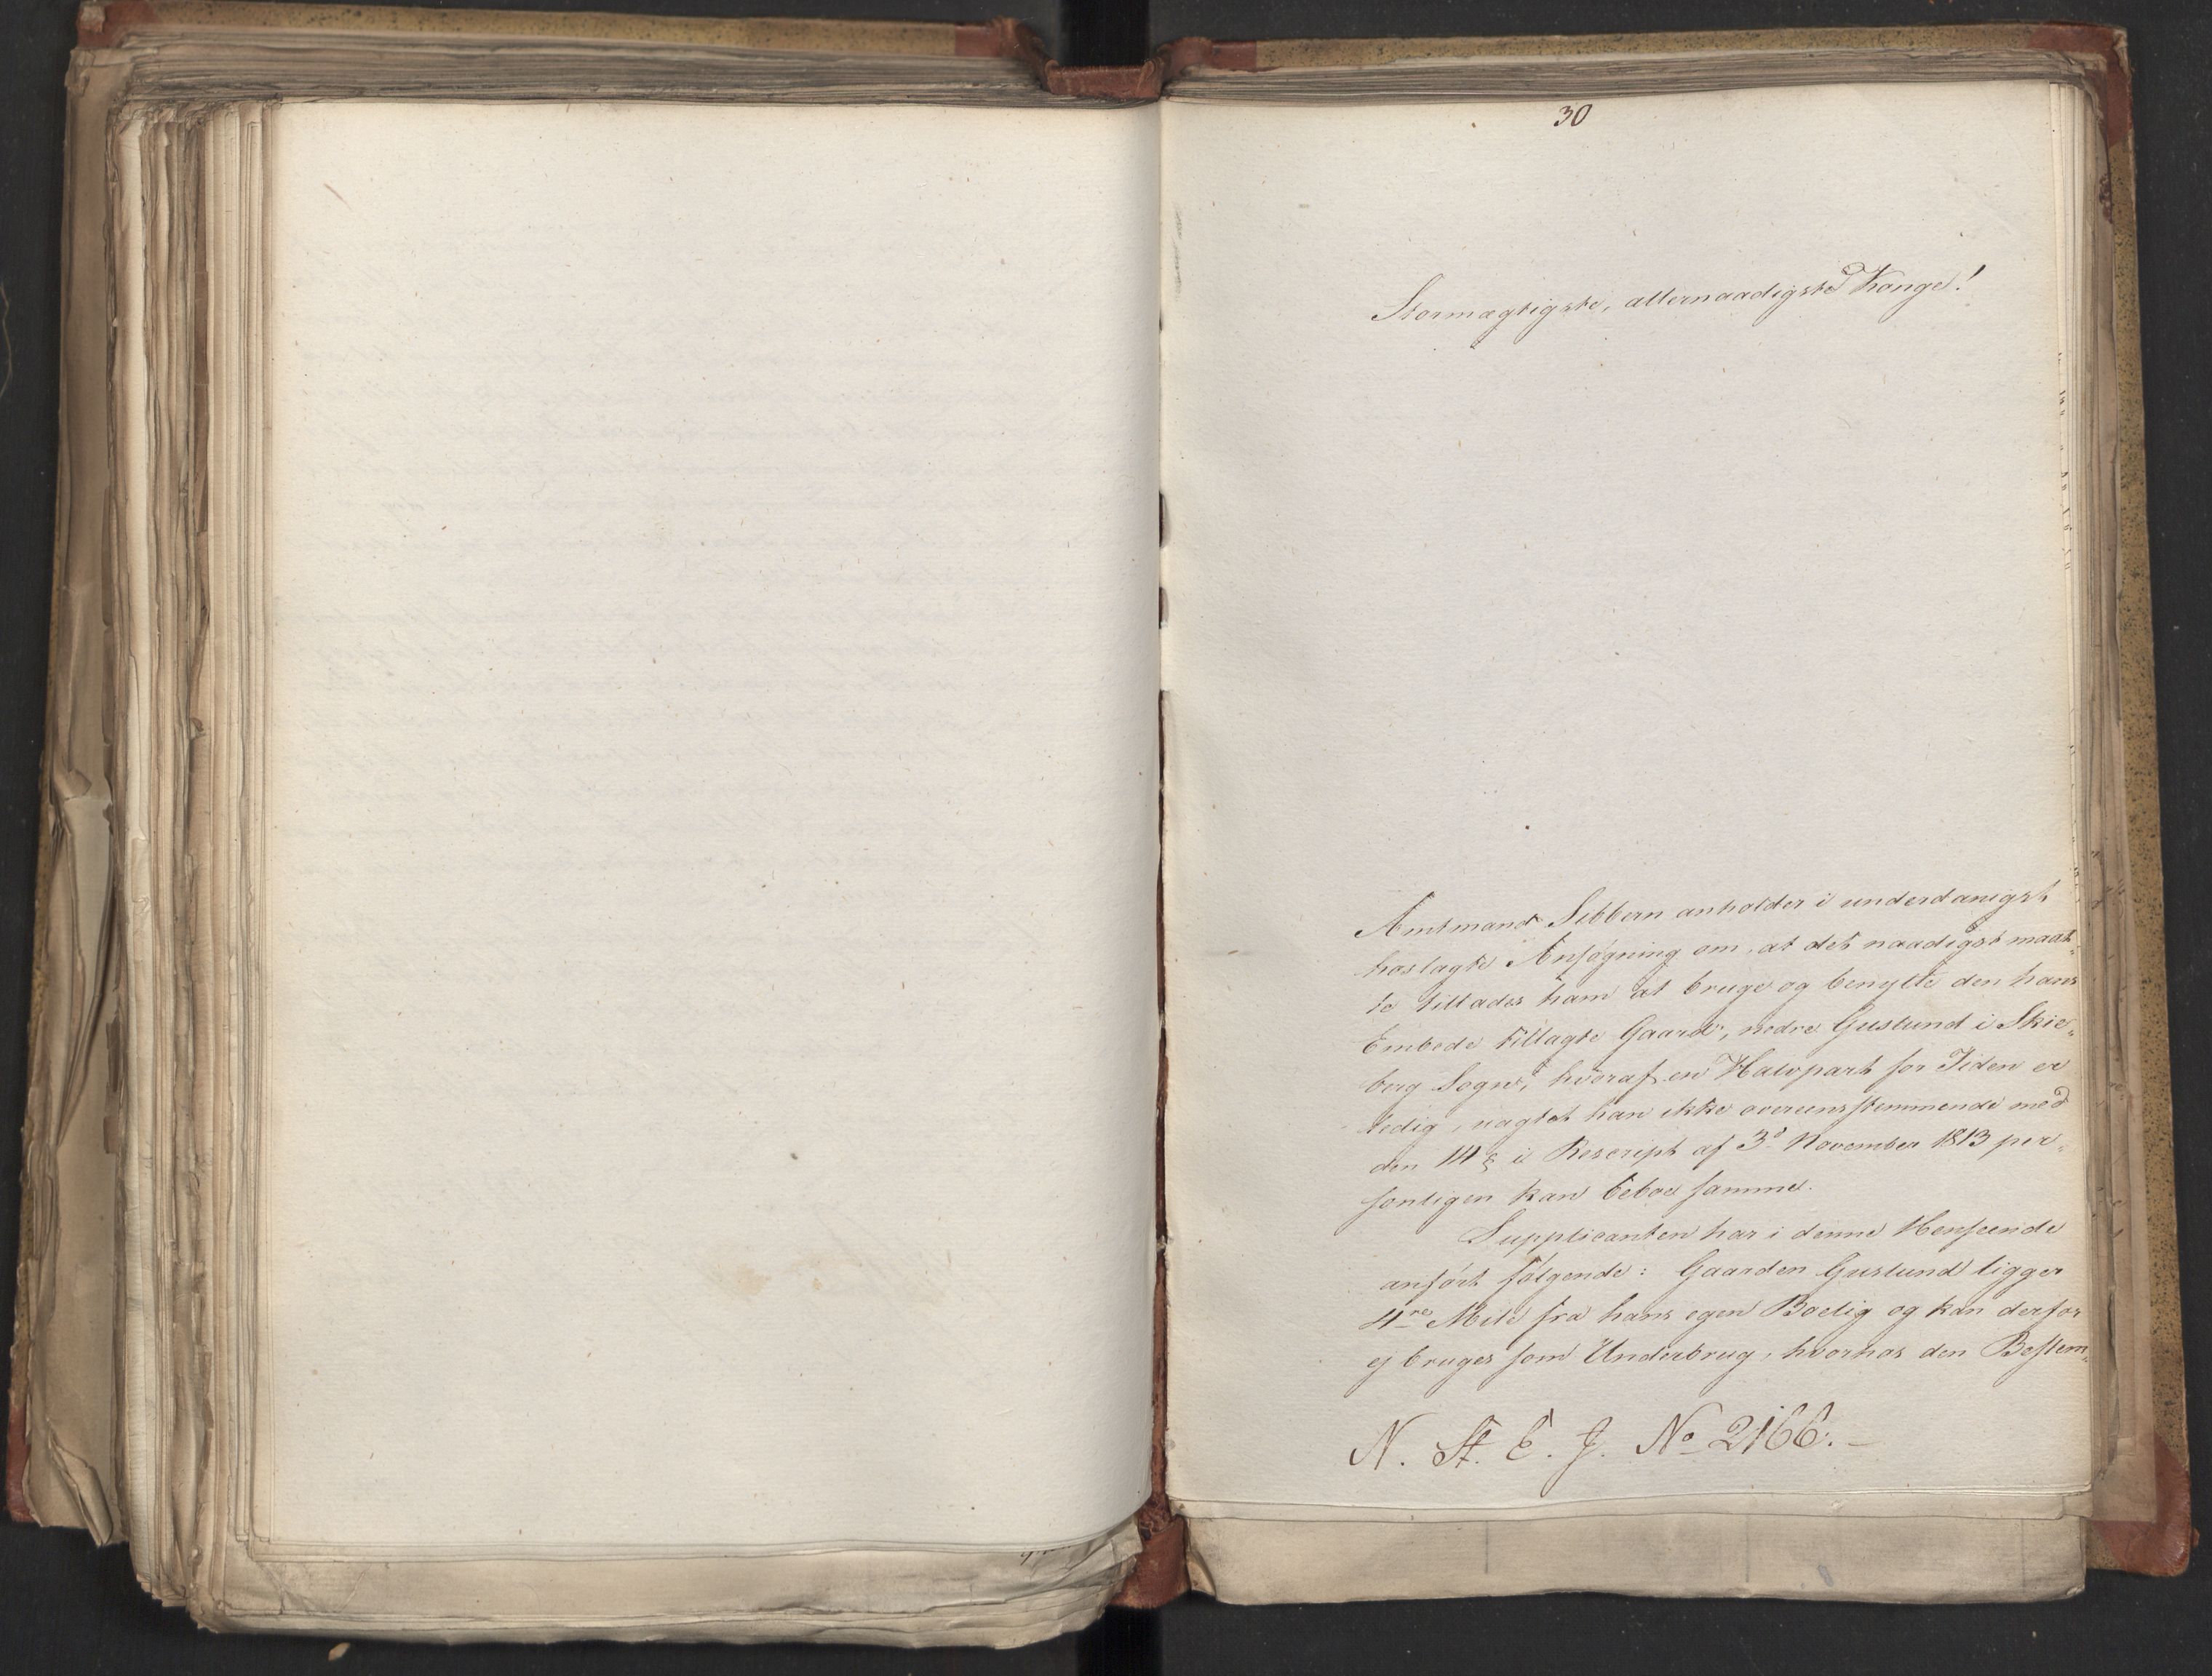 30
Stormægtigste, allernaadigste Konge!
Amtmand Sibbern anholder i underdanigst
hoslagte Ansøgning om, at det naadigst maat„
te tillades ham at bruge og benytte den hans
Embede tillagte Gaard, nedre Guslund i Skie„
berg Sogn, hvoraf en Halvpart for Tiden er
ledig, uagtet han ikke overeensstemmende med
den 14 § i Rescript af 3d November 1813 per„
sonligen kan beboe samme.
Supplicanten har i denne Henseende
anført følgende: Gaarden Guslund ligger
4re Mile fra hans egen Boelig og kan derfor
ej bruges som Underbrug, hvorhos den Bestem„
N. St. E. J. No 2166.–